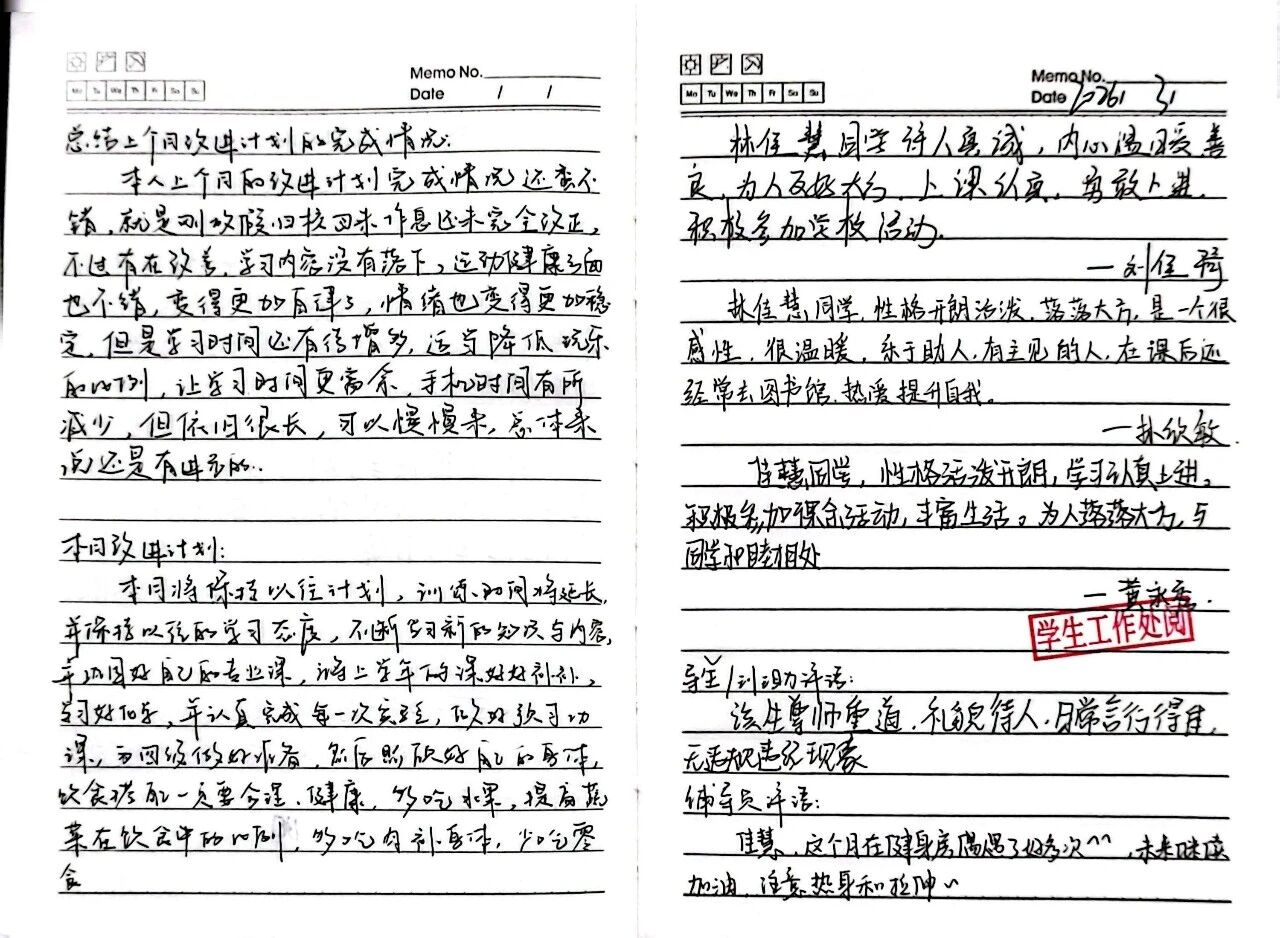 Memo No.
Date / /
Mo Tu We Th Fr Sa Su
总结上个月改进计划的完成情况:
本人上个月的改进计划完成情况还蛮不
错，就是刚放假归校回来作息还未完全改正，
不过有在改善，学习内容没有落下，运动健康方面
也不错，变得更加自律了，情绪也变得更加稳
定，但是学习时间还有待增多，适当降低玩乐
的比例，让学习时间更富余，手机时间有所
减少，但依旧很长，可以慢慢来，总体来
说还是有进步的.
本月改进计划:
本月将保持以往计划，训练时间将延长，
并保持以往的学习态度，不断学习新的知识与内容，
巩固好自己的专业课，将上学年的课好好补补，
学习好，并认真完成每一次实验，做好预习功
课，为四级做好准备，然后照顾好自己的身体，
饮食搭配一定要合理、健康，多吃水果，提高蔬
菜在饮食中的比例，多吃肉补身体，少吃零
食
Memo No.
Date 2026/ 3/
Mo Tu We Th Fr Sa Su
林佳慧同学待人真诚，内心温暖善
良，为人友好大方，上课认真，勇敢上进，
积极参加学校活动.
—刘佳琦
林佳慧同学，性格开朗活泼，落落大方，是一个很
感性，很温暖，乐于助人，有主见的人，在课后还
经常去图书馆，热爱提升自我。
—林欣敏.
佳慧同学，性格活泼开朗，学习认真上进。
积极参加课余活动，丰富生活。为人落落大方，与
同学和睦相处
—黄永
学生工作处阅
导生/副班助评语:
该生尊师重道，礼貌待人，日常言行得体，
无违规违纪现象
辅导员评语:
佳慧，这个月在健身房偶遇了好多次^^，未来继续
加油，注意热身和拉伸~